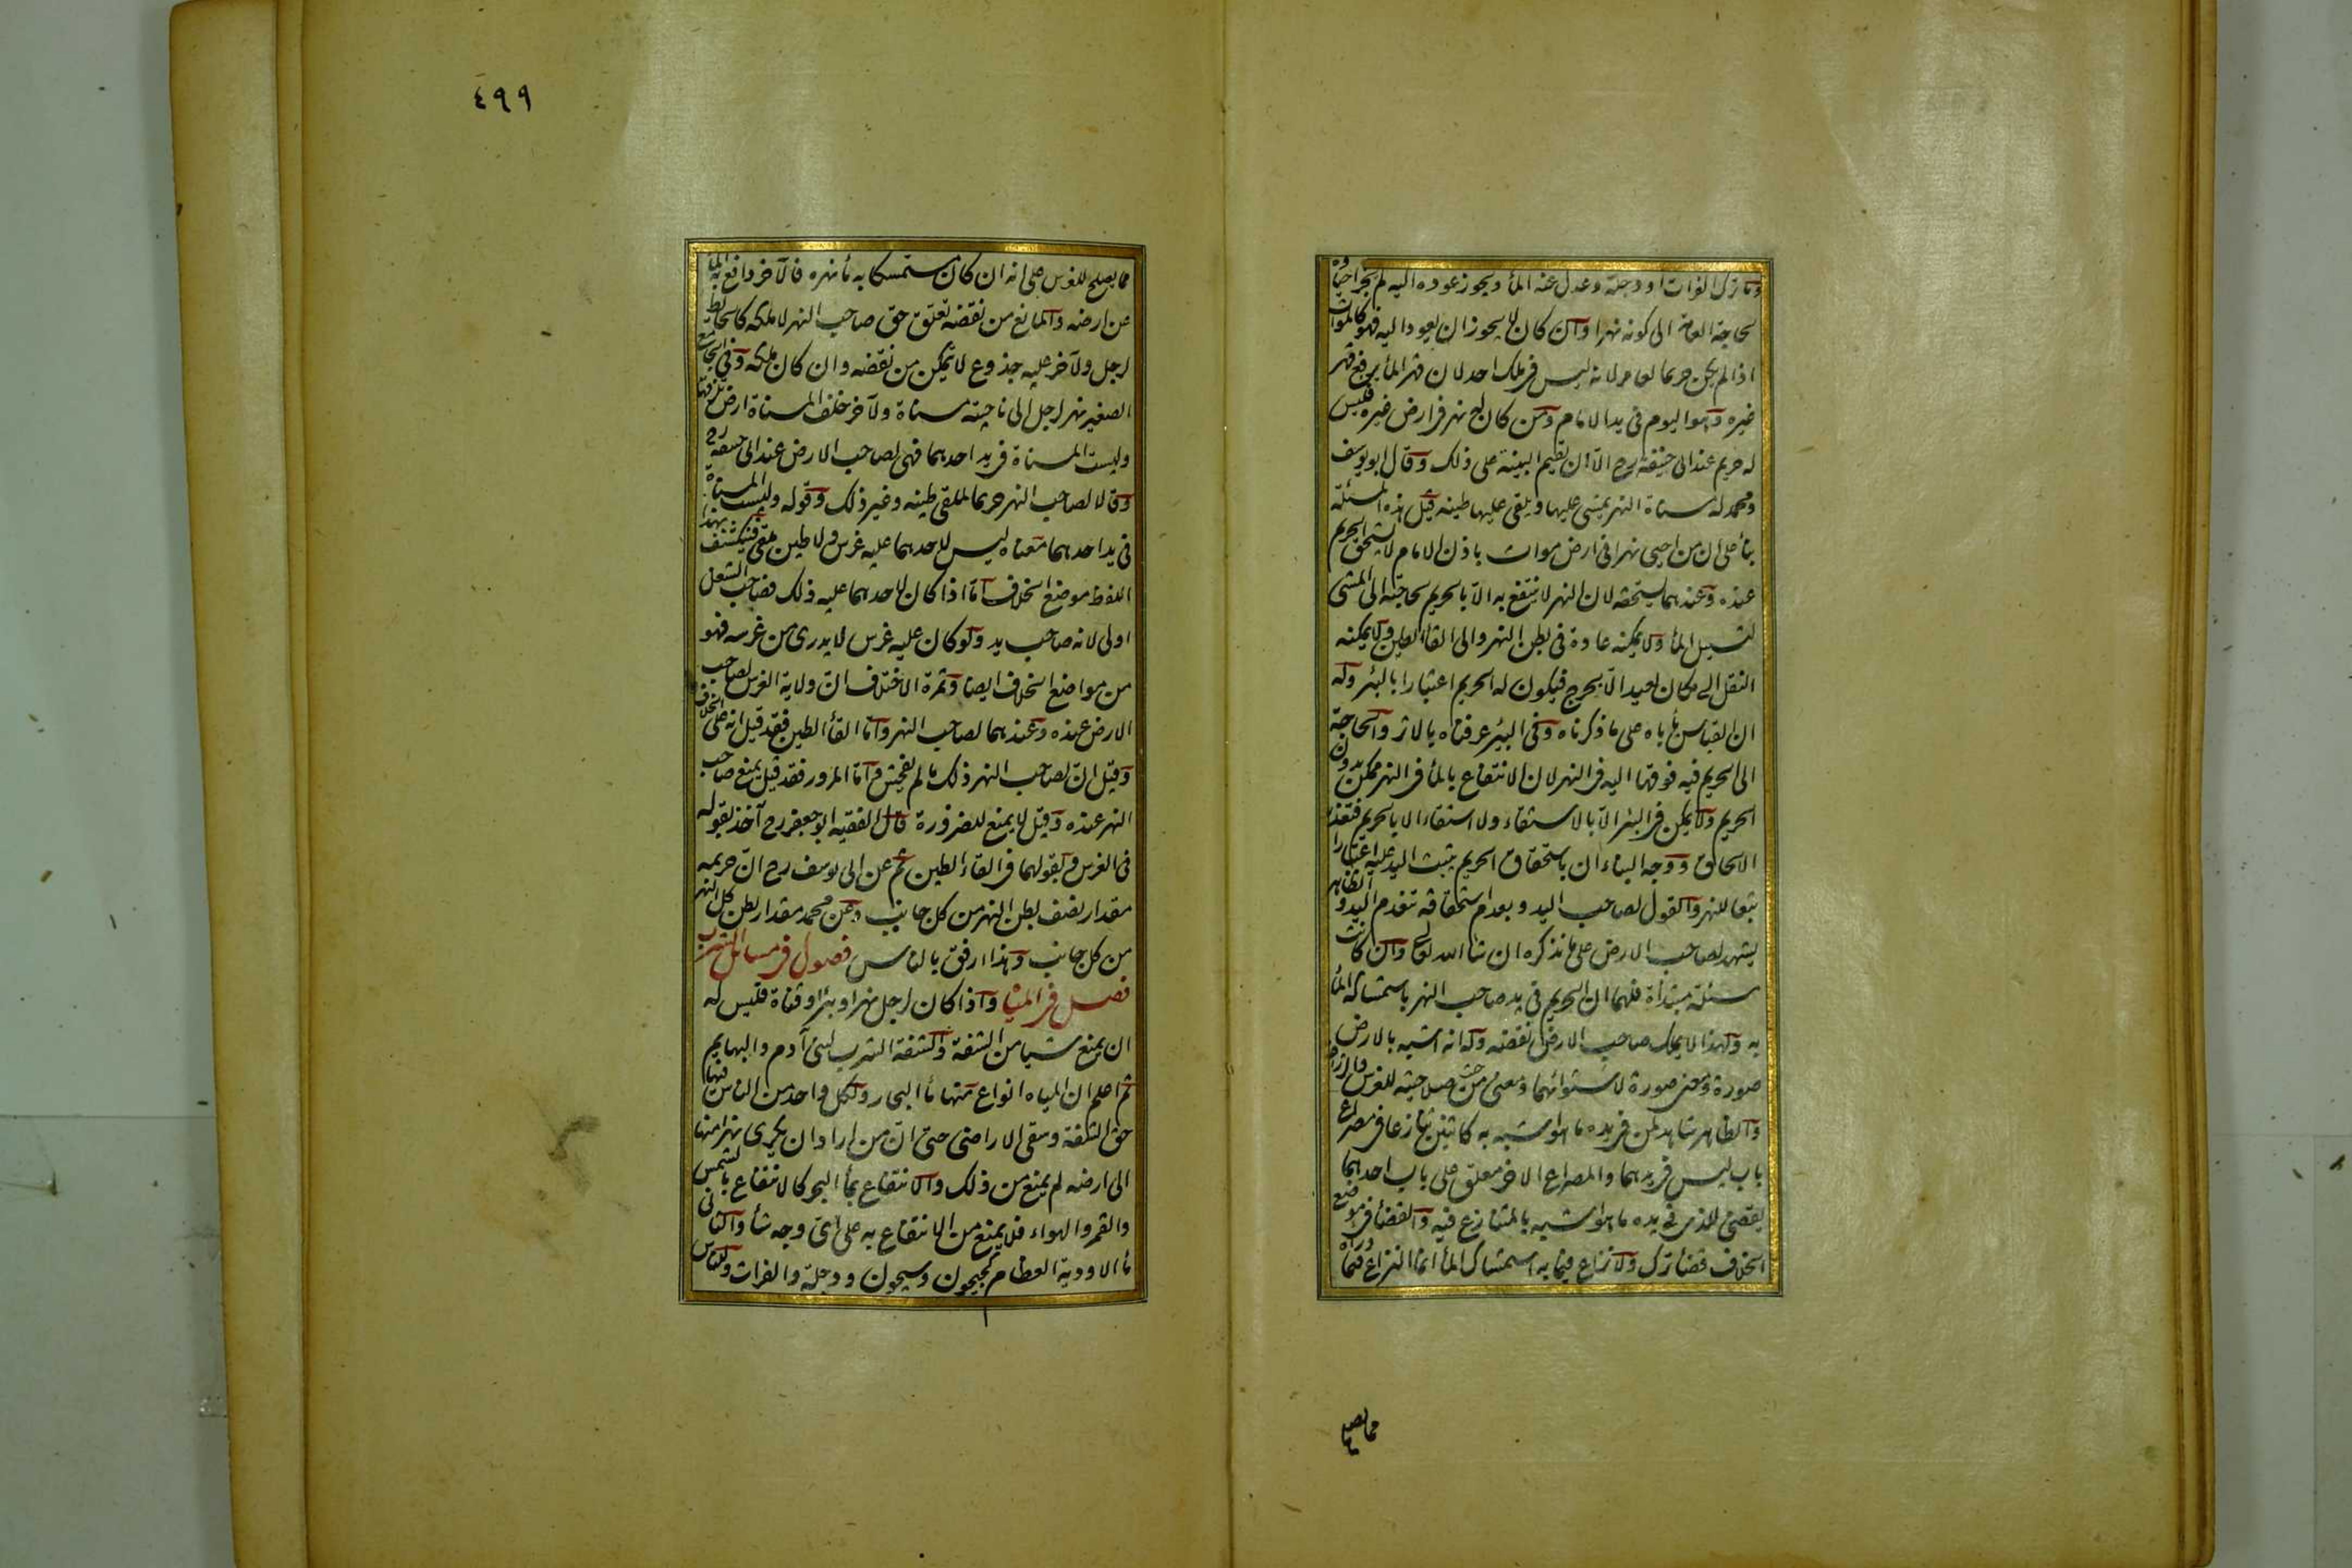 وما ترك الفرات او دجلة وعدل عنه الماء ويجوز عوده اليه لم يجز احياؤه
لحاجة العامة الى كونه نهرا وان كان لا يجوز ان يعود اليه فهو كالموات
اذا لم يكن حريما لعامر لانه ليس في ملك احد لان قهر الماء يدفع قهر
غيره وهو اليوم في يد الامام ومن كان له نهر في ارض غيره فليس
له حريم عند ابى حنيفة رح الا ان يقيم البينة على ذلك وقال ابو يوسف
ومحمد له مسناة النهر يمشى عليها ويلقى عليها طينه قيل هذه المسئلة
بناء على ان من احيى نهرا فى ارض موات باذن الامام لا يستحق الحريم
عنده وعندهما يستحقه لان النهر لا ينتفع به الا بالحريم لحاجته الى المشى
لتسييل الماء ولا يمكنه عادة فى بطن النهر والى القاء الطين ولا يمكنه
النقل الى مكان بعيد الا بحرج فيكون له الحريم اعتبارا بالبئر وله
ان القياس يأباه على ما ذكرناه وفى البئر عرفناه بالاثر والحاجة
الى الحريم فيه فوقها اليه فى النهر لان الانتفاع بالماء فى النهر ممكن بدون
الحريم ولا يمكن فى البئر الا بالاستقاء ولا استقاء الا بالحريم فتعذر
الالحاق ووجه البناء ان باستحقاق الحريم يثبت اليد عليه اعتبارا
تبعا للنهر والقول لصاحب اليد وبعدم استحقاقه تنعدم اليد والظاهر
يشهد لصاحب الارض على ما نذكره ان شاء الله تعالى وان كانت
مسئلة مبتدأة فلهما ان الحريم فى يد صاحب النهر باستمساكه الماء
به ولهذا لا يملك صاحب الارض نقضه وله انه اشبه بالارض
صورة ومعنى صورة لاستوائهما ومعنى من حيث صلاحيته للغرس والزراعة
والظاهر شاهد لمن فى يده ما هو اشبه به كاثنين تنازعا فى مصراع
باب ليس فى يدهما والمصراع الاخر معلق على باب احدهما
يقضى للذى فى يده ما هو اشبه بالمتنازع فيه والقضاء فى موضع
الخلاف قضاء ترك ولا نزاع فيما به استمساك الماء انما النزاع فيما وراه
مما يصلح
٤٩٩
مما يصلح للغرس على انه ان كان مستمسكا به ماء نهره فالآخر دافع به الماء
عن ارضه والمانع من نقضه تعلق حق صاحب النهر لا ملكه كالحائط
لرجل ولآخر عليه جذوع لا يتمكن من نقضه وان كان ملكه وفى الجامع
الصغير نهر لرجل الى ناحيته مسناة ولآخر خلف المسناة ارض تلزقها
وليست المسناة فى يد احدهما فهى لصاحب الارض عند ابى حنيفة رح
وقالا لصاحب النهر حريما لملقى طينه وغير ذلك وقوله وليست المسناة
فى يد احدهما معناه ليس لاحدهما عليه غرس ولا طين ملقى فينكشف بهذا
اللفظ موضع الخلاف اما اذا كان لاحدهما عليه ذلك فصاحب الشغل
اولى لانه صاحب يد ولو كان عليه غرس لا يدرى من غرسه فهو
من مواضع الخلاف ايضا وثمرة الاختلاف ان ولاية الغرس لصاحب
الارض عنده وعندهما لصاحب النهر واما القاء الطين فقد قيل انه على الخلاف
وقيل ان لصاحب النهر ذلك ما لم يفحش واما المرور فقد قيل يمنع صاحب
النهر عنده وقيل لا يمنع للضرورة قال الفقيه ابو جعفر رح آخذ بقوله
فى الغرس وبقولهما فى القاء الطين ثم عن ابى يوسف رح ان حريمه
مقدار نصف بطن النهر من كل جانب وعن محمد مقدار بطن كل النهر
من كل جانب وهذا ارفق بالناس فصول فى مسائل الشرب
فصل فى المياه واذا كان لرجل نهر او بئر او قناة فليس له
ان يمنع شيئا من الشفة والشفة الشرب لبنى آدم والبهايم
ثم اعلم ان المياه انواع منها ماء البحار ولكل واحد من الناس فيها
حق الشفة وسقى الاراضى حتى ان من اراد ان يكرى نهرا منها
الى ارضه لم يمنع من ذلك والانتفاع بماء البحر كالانتفاع بالشمس
والقمر والهواء فلا يمنع من الانتفاع به على اى وجه شاء والثانى
ماء الاودية العظام كجيحون وسيحون ودجلة والفرات وللناس